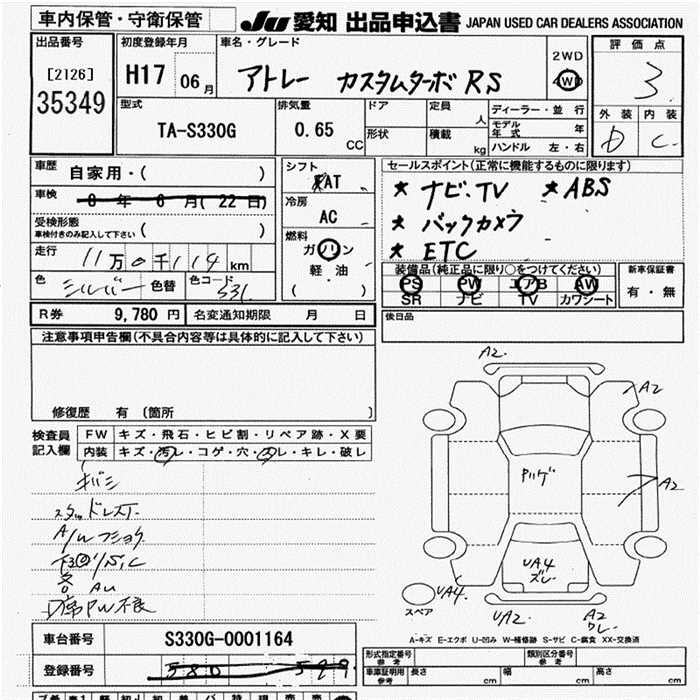 車内保管・守衛保管
JU 愛知 出品申込書 JAPAN USED CAR DEALERS ASSOCIATION
出品番号
[2126]
35349
初度登録年月
H17 06月
車名・グレード
アトレー カスタムターボRS
2WD
4WD
評価点
3
外装 内装
D C
型式
TA-S330G
排気量
0.65 CC
ドア
形状
定員 人
積載 kg
ディーラー・並行
モデル年式 年
ハンドル 左・右
車歴 自家用・( )
車検 8年 6月(22日)
受検形態
車検付きのみ記入して下さい ( )
走行 11万0千114km
色 シルバー 色替 色コード S31
シフト
AT
冷房
AC
燃料
ガソリン
軽・油
( )
セールスポイント(正常に機能するものに限ります)
★ ナビ、TV ★ ABS
★ バックカメラ
★ ETC
装備品(純正品に限り○をつけてください)
PS PW エアB AW
SR ナビ TV カワシート
新車保証書
有・無
R券 9,780円 名変通知期限 月 日
後日品
注意事項申告欄(不具合内容等は具体的に記入して下さい)
修復歴 有 (箇所 )
検査員記入欄
FW キズ・飛石・ヒビ割・リペア跡・X要
内装 キズ・汚レ・コゲ・穴・スレ・キレ・破レ
キバミ
A/W フショク
各 AU
席PW不良
A2
A2
A2
UA4
ズレ
UA4
UA2
A2
ワレ
スペア
A-キズ E-エクボ U-凹み W-補修跡 S-サビ C-腐食 XX-交換済
車台番号 S330G-0001164
登録番号 580 599
形式指定番号
参考
類別区分番号
参考
車庫証明用
参考
長さ cm 幅 cm 高さ cm